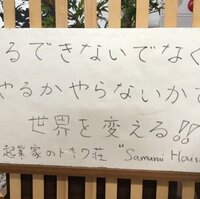 るできないでなく
やるかやらないかで
世界を変える!!
起業家のトキワ荘 "Samurai Hous